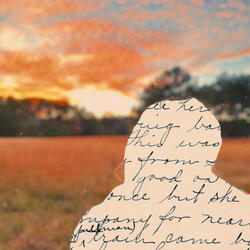 ce her
ring ba
this was
from
good on
once but she
company for near
pullman
train came b